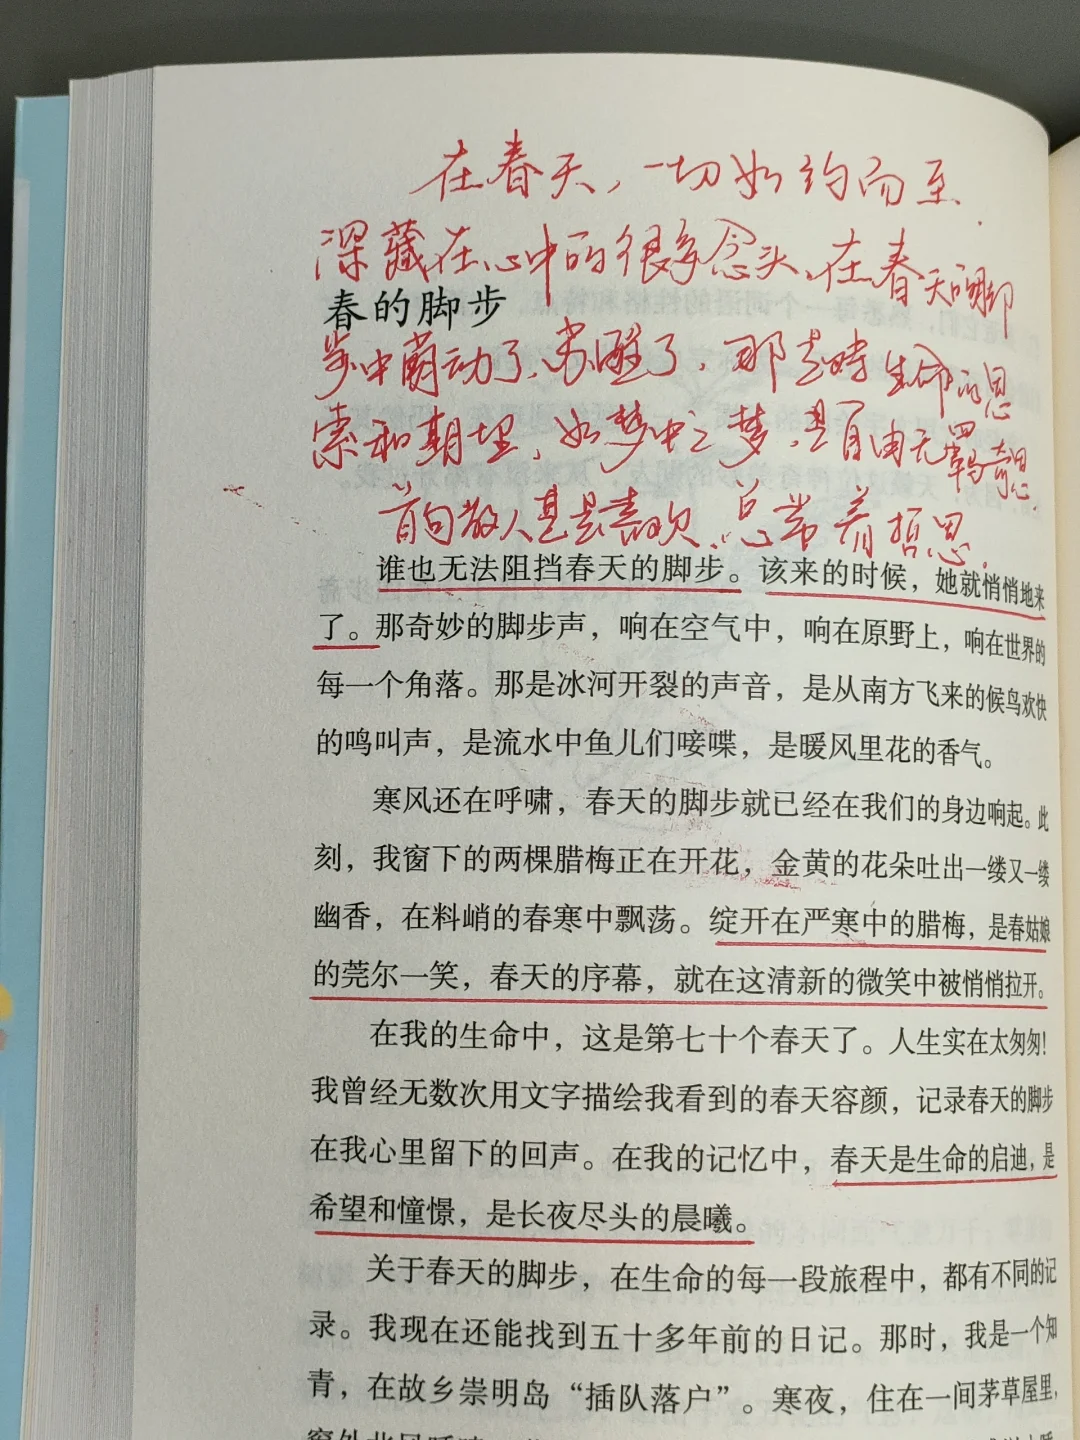 在春天，一切如约而至.
深藏在心中的很多念头、在春天的脚
春的脚步
步中萌动了、苏醒了，那是对生命的思
索和期望，如梦中之梦，是自由无羁
首句散人甚是喜欢、总带着哲思.
谁也无法阻挡春天的脚步。该来的时候，她就悄悄地来
了。那奇妙的脚步声，响在空气中，响在原野上，响在世界的
每一个角落。那是冰河开裂的声音，是从南方飞来的候鸟欢快
的鸣叫声，是流水中鱼儿们唼喋，是暖风里花的香气。
寒风还在呼啸，春天的脚步就已经在我们的身边响起。此
刻，我窗下的两棵腊梅正在开花，金黄的花朵吐出一缕又一缕
幽香，在料峭的春寒中飘荡。绽开在严寒中的腊梅，是春姑娘
的莞尔一笑，春天的序幕，就在这清新的微笑中被悄悄拉开。
在我的生命中，这是第七十个春天了。人生实在太匆匆！
我曾经无数次用文字描绘我看到的春天容颜，记录春天的脚步
在我心里留下的回声。在我的记忆中，春天是生命的启迪，是
希望和憧憬，是长夜尽头的晨曦。
关于春天的脚步，在生命的每一段旅程中，都有不同的记
录。我现在还能找到五十多年前的日记。那时，我是一个知
青，在故乡崇明岛“插队落户”。寒夜，住在一间茅草屋里，